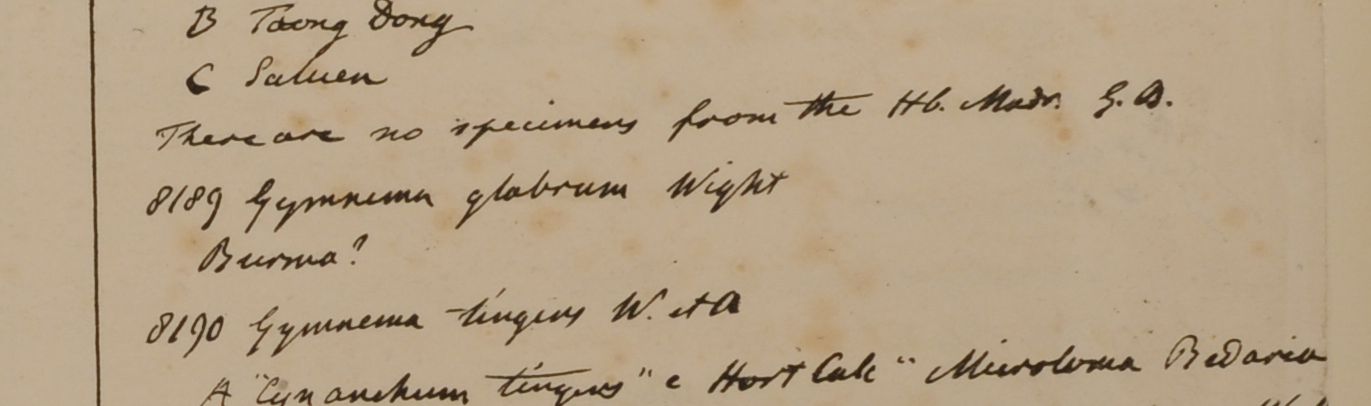 B Taong Dong
C Saluen
There are no specimens from the Hb. Madr. G. D.
8189 Gymnema glabrum Wight
Burma?
8190 Gymnema tingens W. et A
A "Cynanchum tingens" e Hort Calc " Microloma Bedaria